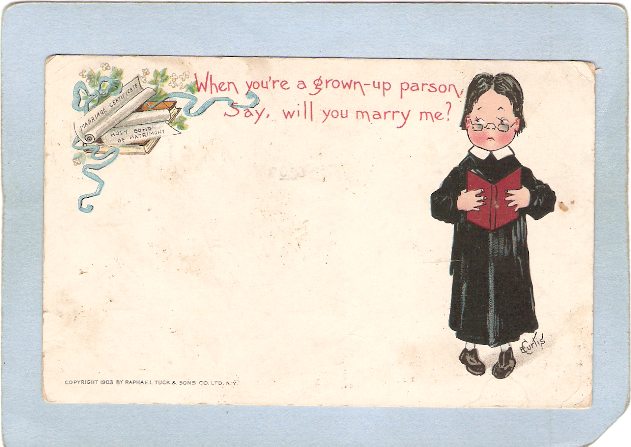 When you're a grown-up parson,
Say, will you marry me?
MARRIAGE CERTIFICATE
HOLY BOND
OF MATRIMONY
E Curtis
COPYRIGHT 1903 BY RAPHAEL TUCK & SONS CO. LTD. N.Y.